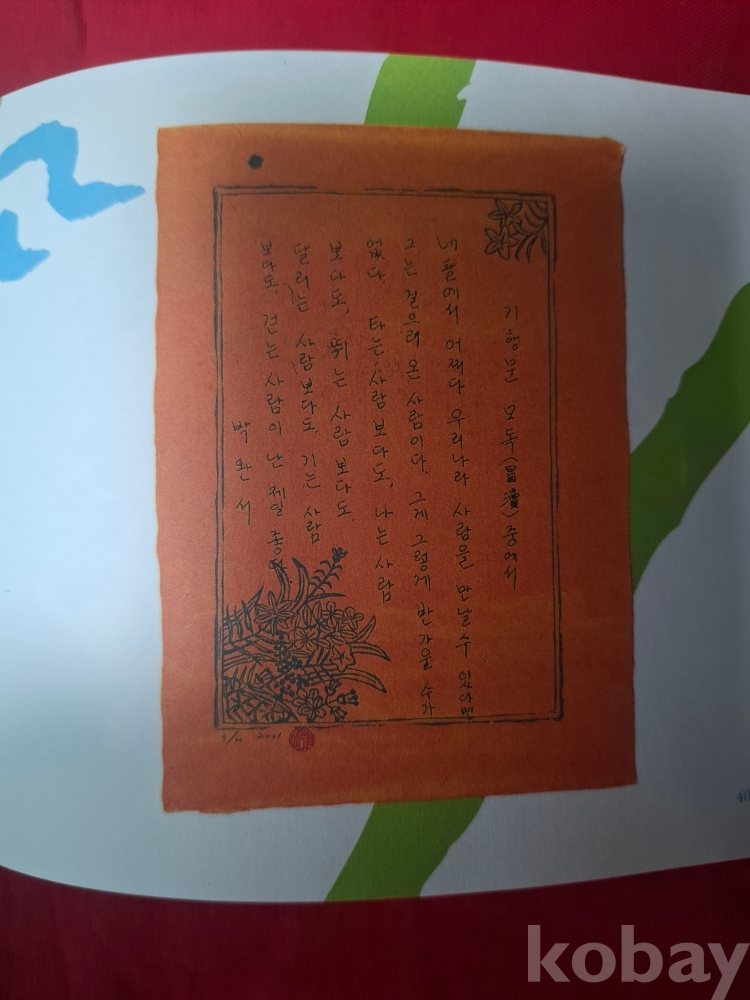 기행문 모독(冒瀆)중에서
내 뜰에서 어쩌다 우리나라 사람을 만날 수 있다면
그는 걸으러 온 사람이다. 그게 그렇게 반가울 수가
없다. 타는 사람보다도, 나는 사람
보다도, 뛰는 사람보다도,
달리는 사람보다도, 기는 사람
보다도, 걷는 사람이 난 제일 좋다
박완서
2001
kobay